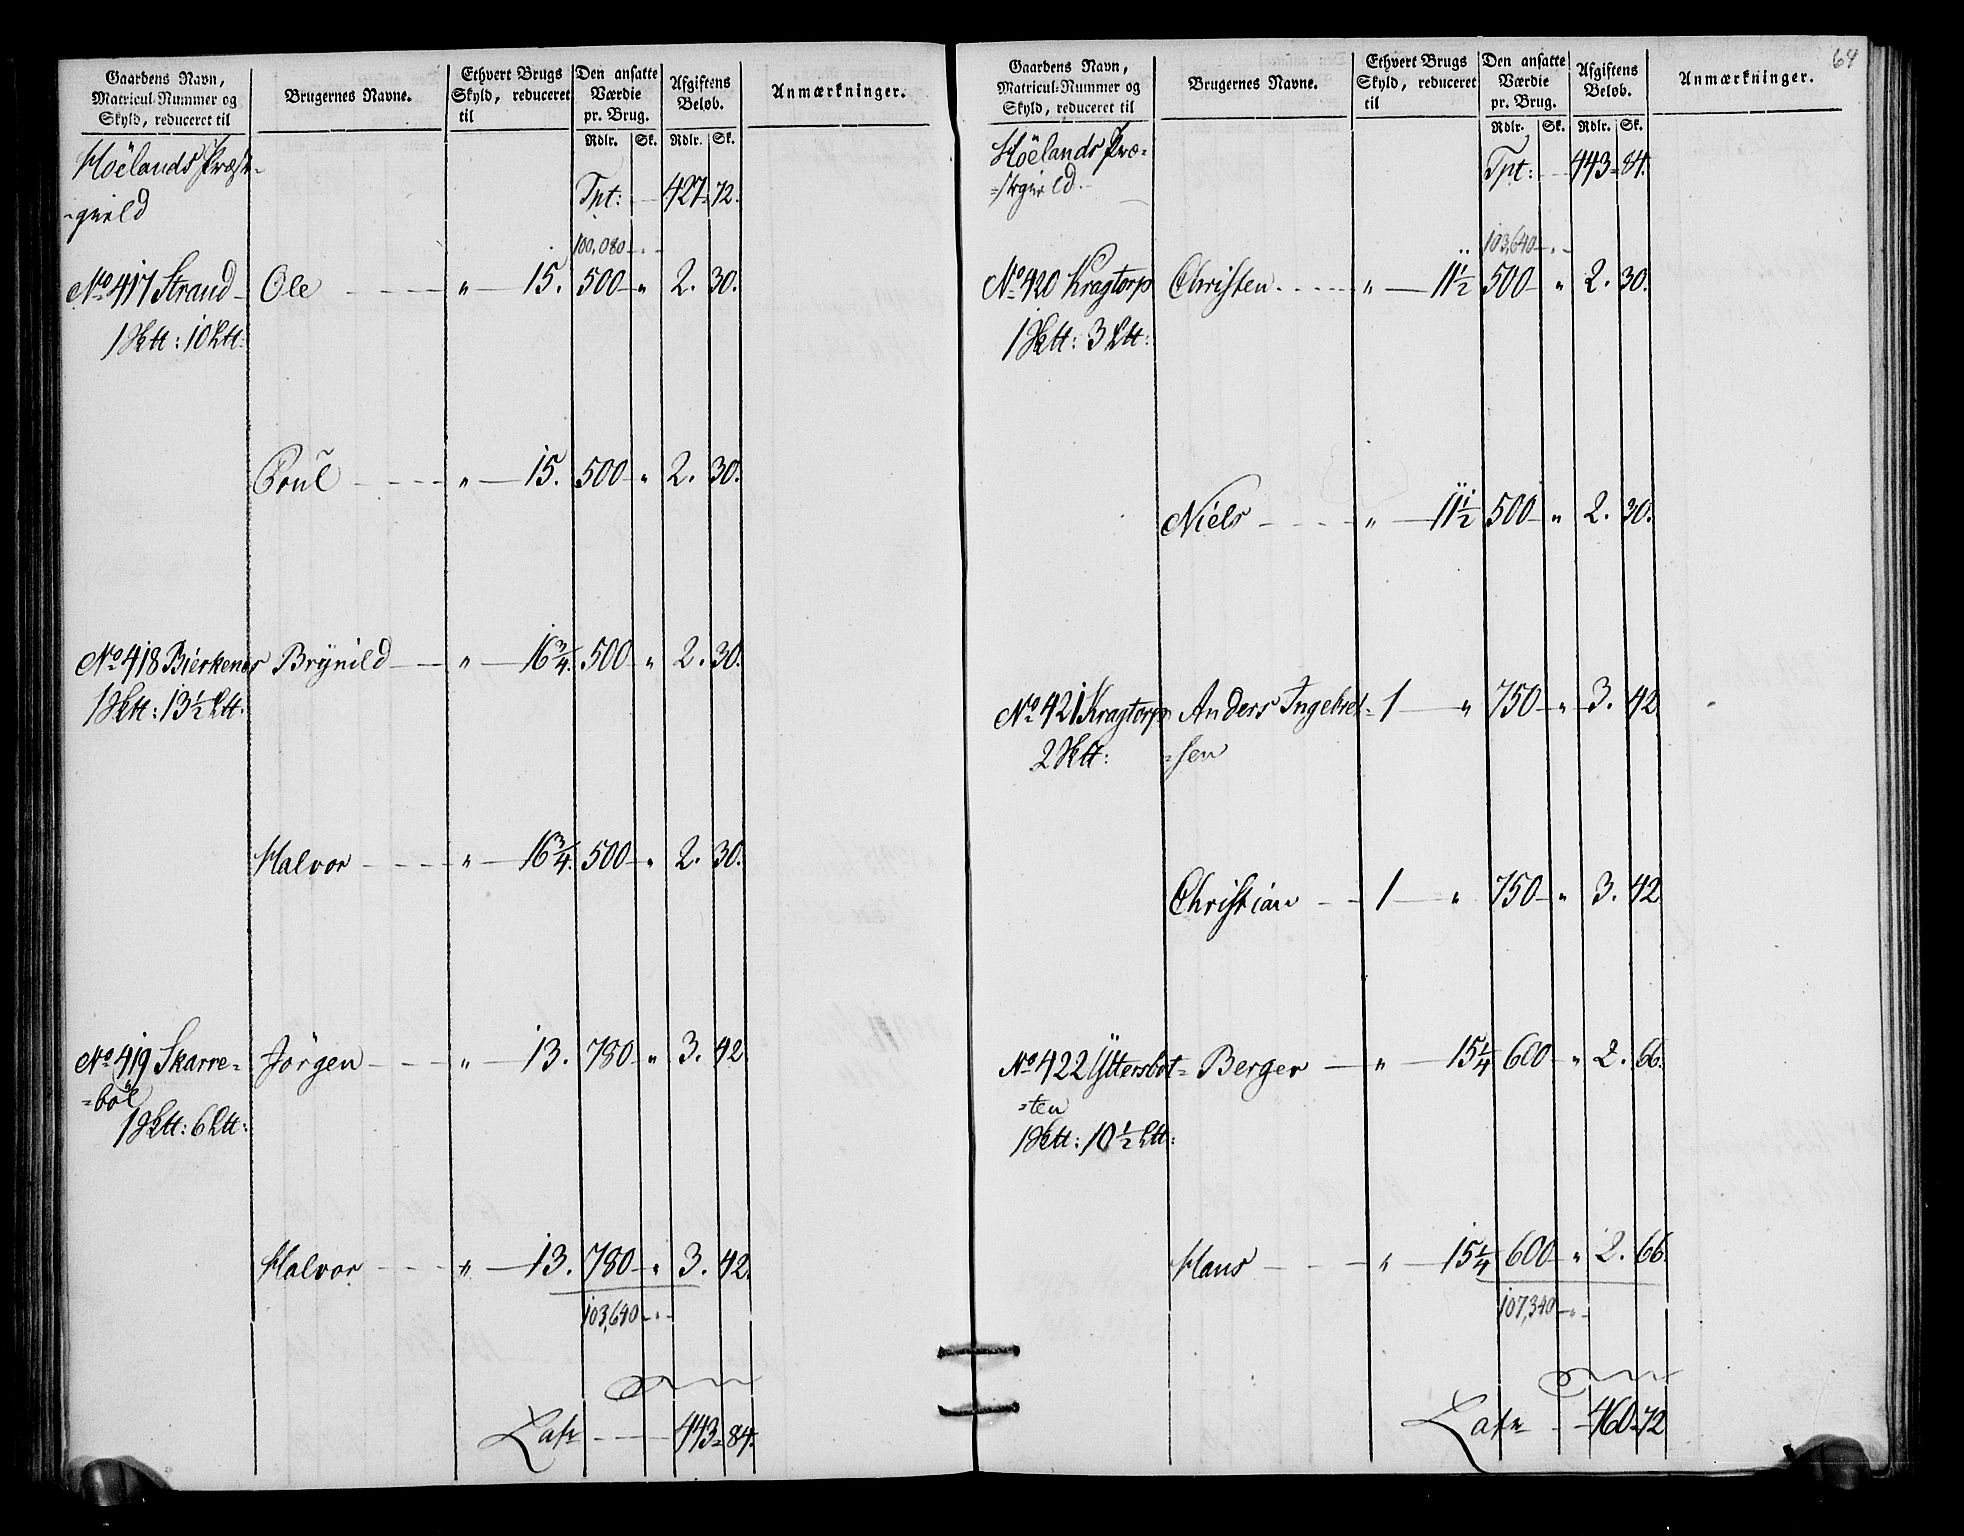 Gaardens Navn, Matricul-Nummer og Skyld, reduceret til | Brugernes Navne. | Ethvert Brugs Skyld, reduceret til | Den ansatte Værdie pr. Brug. Rdlr. Sk. | Afgiftens Beløb. Rdlr. Sk. | Anmærkninger.
Höelands Præste-
-gield
Tpt: 427 72.
100,080
No 417 Strand Ole „ 15. 500 „ 2. 30.
1 Sktt: 10 Ltt:
Poul „ 15. 500 „ 2. 30.
No 418 Bierkenes Brynild „ 16 3/4. 500 „ 2. 30.
1 Sktt: 13 1/2 Ltt.
Halvor „ 16 3/4. 500 „ 2. 30.
No 419 Skarre= Jörgen „ 13. 780 „ 3. 42
=böl
1 Sktt: 6 Ltt:
Halvor „ 13. 780 „ 3. 42.
103,640
Late 443 84.
64
Gaardens Navn, Matricul-Nummer og Skyld, reduceret til | Brugernes Navne. | Ethvert Brugs Skyld, reduceret til | Den ansatte Værdie pr. Brug. Rdlr. Sk. | Afgiftens Beløb. Rdlr. Sk. | Anmærkninger.
Höelands Præ=
=stegield.
Tpt: 443 84.
103,640
No 420 Kragtorp Christen „ 11 1/2 500 „ 2. 30.
1 Sktt: 3 Ltt:
Niels „ 11 1/2 500 „ 2. 30.
No 421 Kragtorp Anders Ingebret= 1 „ 750 „ 3. 42
2 Sktt: =sen
Christian 1 „ 750 „ 3. 42
No 422 Yttersbot= Berger „ 15 1/4 600 „ 2. 66.
=ten
1 Sktt: 10 1/2 Ltt:
Hans „ 15 1/4 600 „ 2. 66.
107,340
Late 460 72